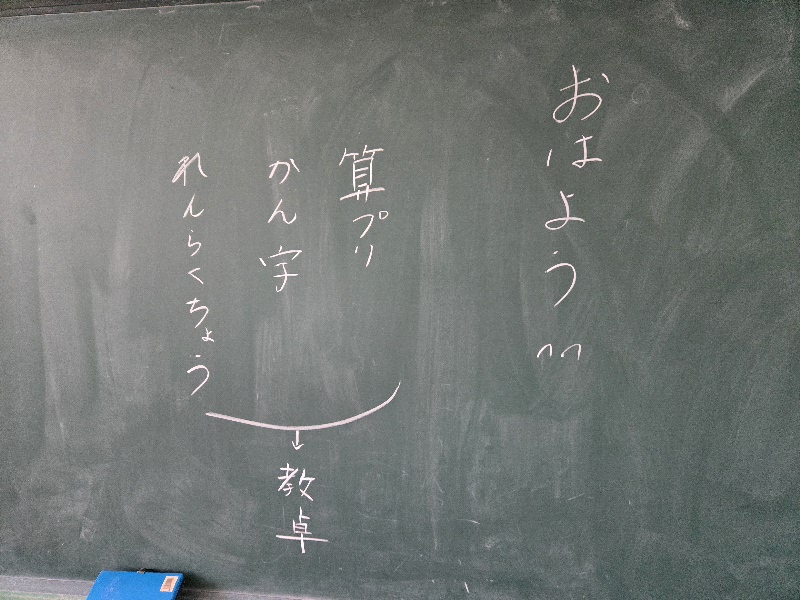 おはよう^^
算プリ
かん字
れんらくちょう
↓
教卓